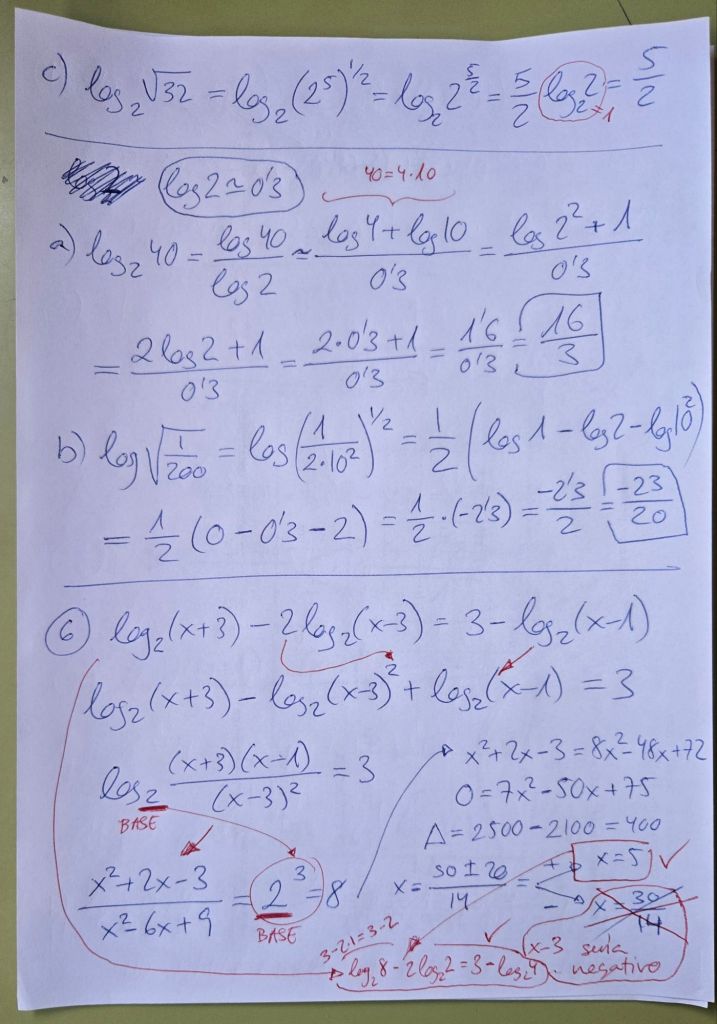 c) log₂√32 = log₂(2⁵)^1/2 = log₂2^5/2 = 5/2 log₂2 = 5/2
=1
log2 ≃ 0'3
40=4·10
a) log₂40 = log40/log2 ≃ (log4+log10)/0'3 = (log2²+1)/0'3
= (2log2+1)/0'3 = (2·0'3+1)/0'3 = 1'6/0'3 = 16/3
b) log√(1/200) = log(1/(2·10²))^1/2 = 1/2 (log1-log2-log10²)
= 1/2 (0-0'3-2) = 1/2·(-2'3) = -2'3/2 = -23/20
⑥ log₂(x+3) - 2log₂(x-3) = 3 - log₂(x-1)
log₂(x+3) - log₂(x-3)² + log₂(x-1) = 3
log₂ (x+3)(x-1)/(x-3)² = 3
BASE
(x²+2x-3)/(x²-6x+9) = 2³ = 8
BASE
x²+2x-3 = 8x²-48x+72
0 = 7x²-50x+75
Δ = 2500-2100 = 400
x = (50±20)/14 =
+ x=5 ✓
- x=30/14
x-3 sería
negativo
3-2·1=3-2 ✓
log₂8-2log₂2=3-log₂4